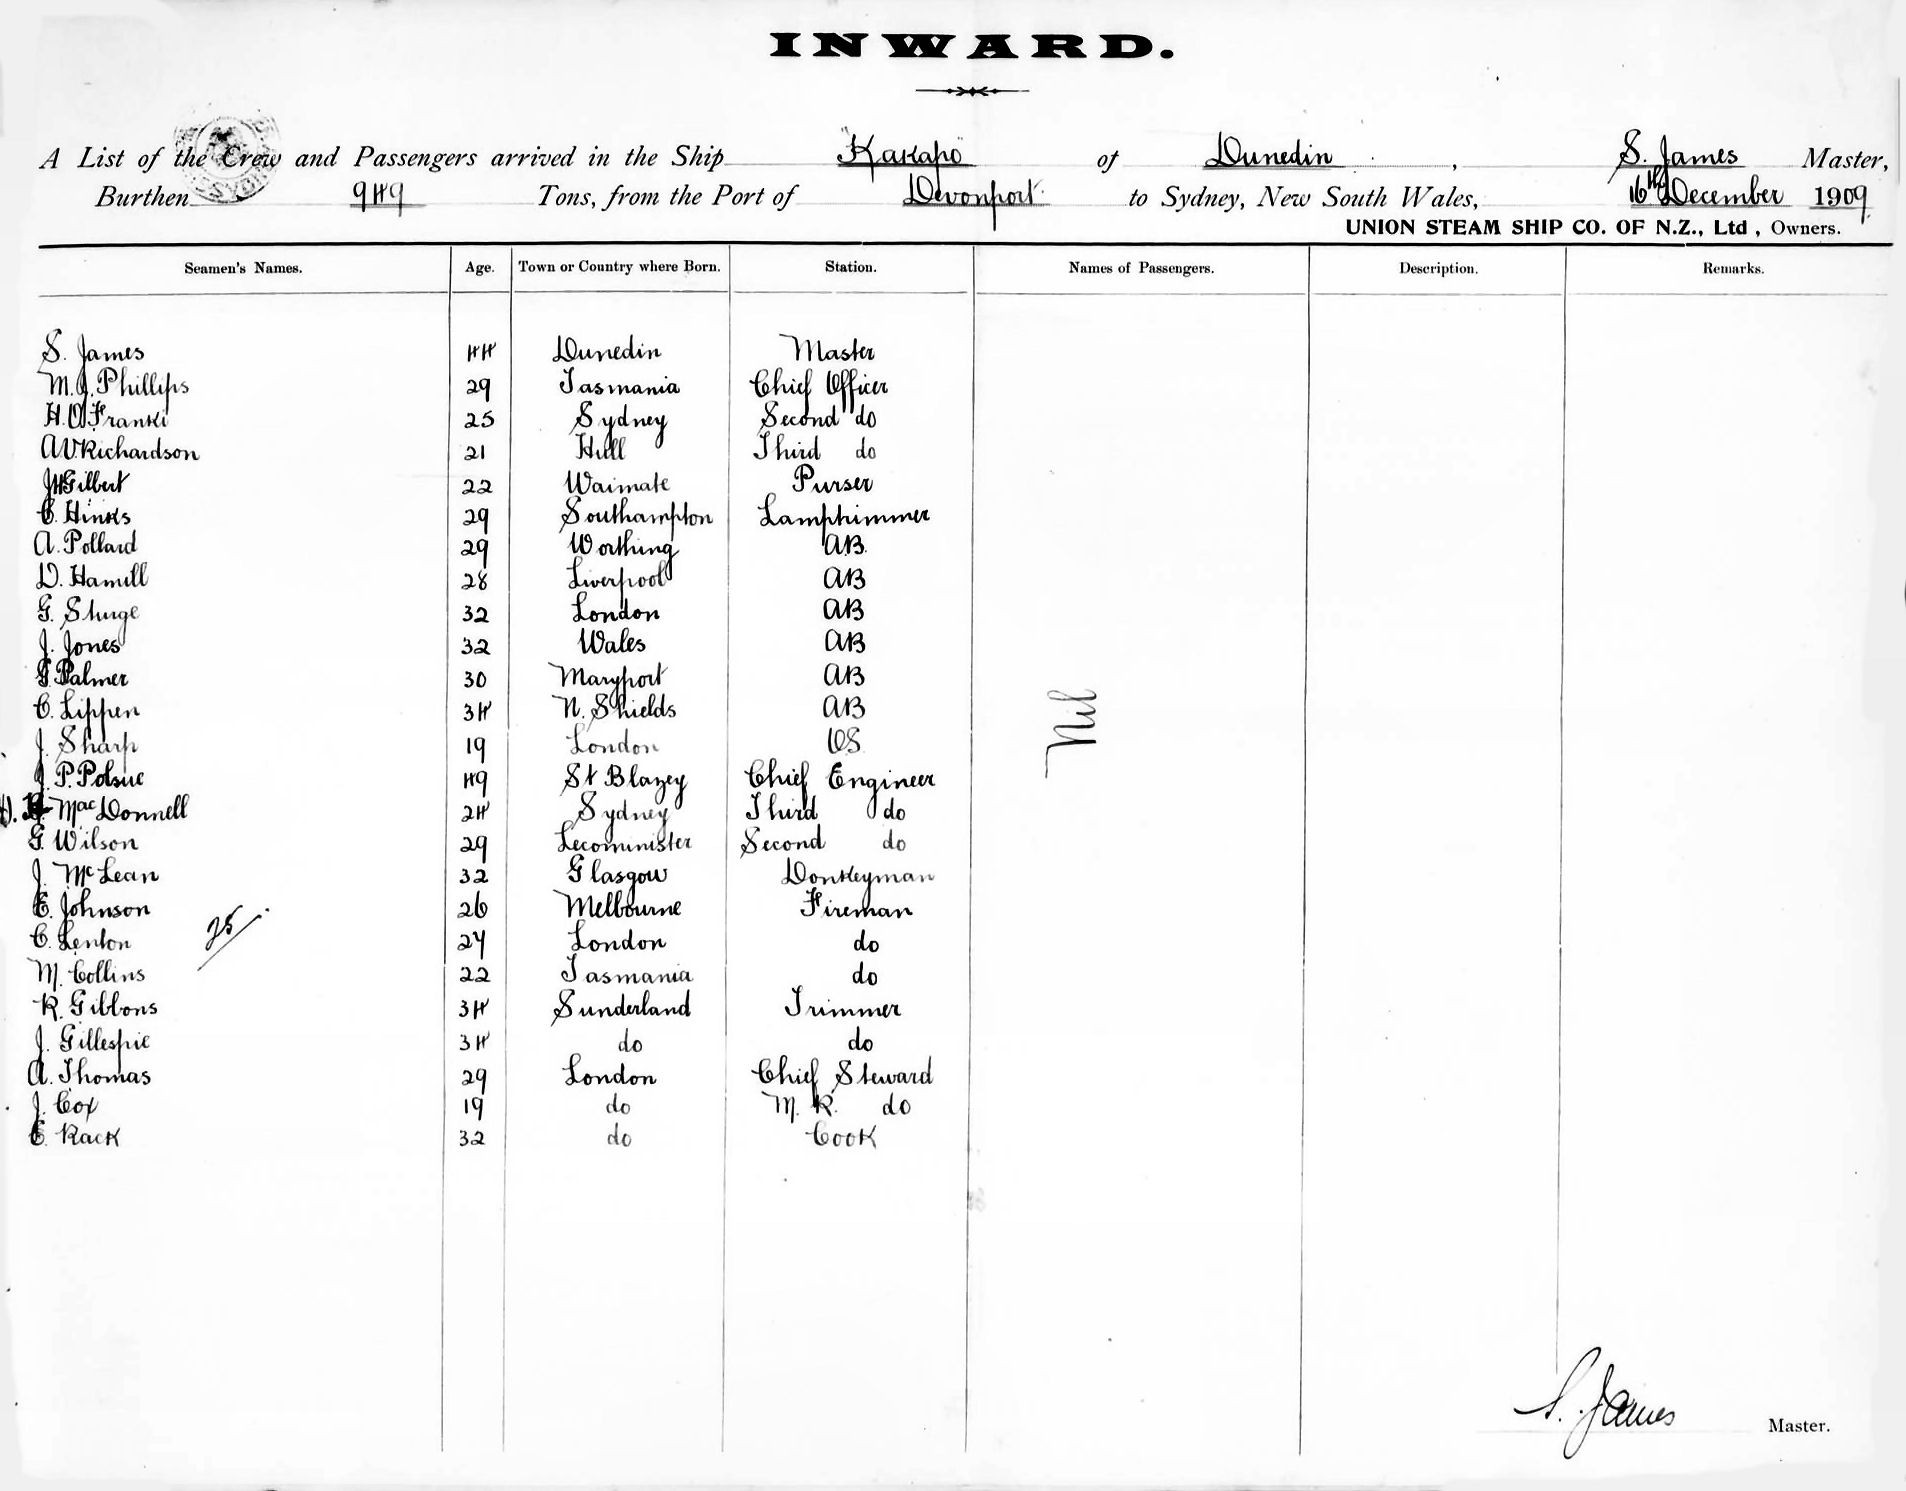 INWARD.
A List of the Crew and Passengers arrived in the Ship "Kakapo" of Dunedin, S. James Master,
Burthen 949 Tons, from the Port of Devonport to Sydney, New South Wales, 16th December 1909
UNION STEAM SHIP CO. OF N.Z., Ltd, Owners.
Seamen's Names. Age. Town or Country where Born. Station. Names of Passengers. Description. Remarks.
S. James 44 Dunedin Master
M.J. Phillips 29 Tasmania Chief Officer
H.O. Franki 25 Sydney Second do
A.V. Richardson 21 Hull Third do
J.H. Gilbert 22 Waimate Purser
C. Hinks 29 Southampton Lamptrimmer
A. Pollard 29 Worthing AB.
D. Hamill 28 Liverpool AB
G. Sturge 32 London AB
J. Jones 32 Wales AB
Palmer 30 Maryport AB
C. Lippen 34 N. Shields AB
J. Sharp 19 London OS.
J. P. Polsue 49 St Blazey Chief Engineer
MacDonnell 24 Sydney Third do
G. Wilson 29 Leominister Second do
J. McLean 32 Glasgow Donkeyman
E. Johnson 26 Melbourne Fireman
C. Lenton 24 London do
M. Collins 22 Tasmania do
R. Gibbons 34 Sunderland Trimmer
J. Gillespie 34 do do
A. Thomas 29 London Chief Steward
J. Cox 19 do M. R. do
E. Rack 32 do Cook
25
Nil
S. James Master.